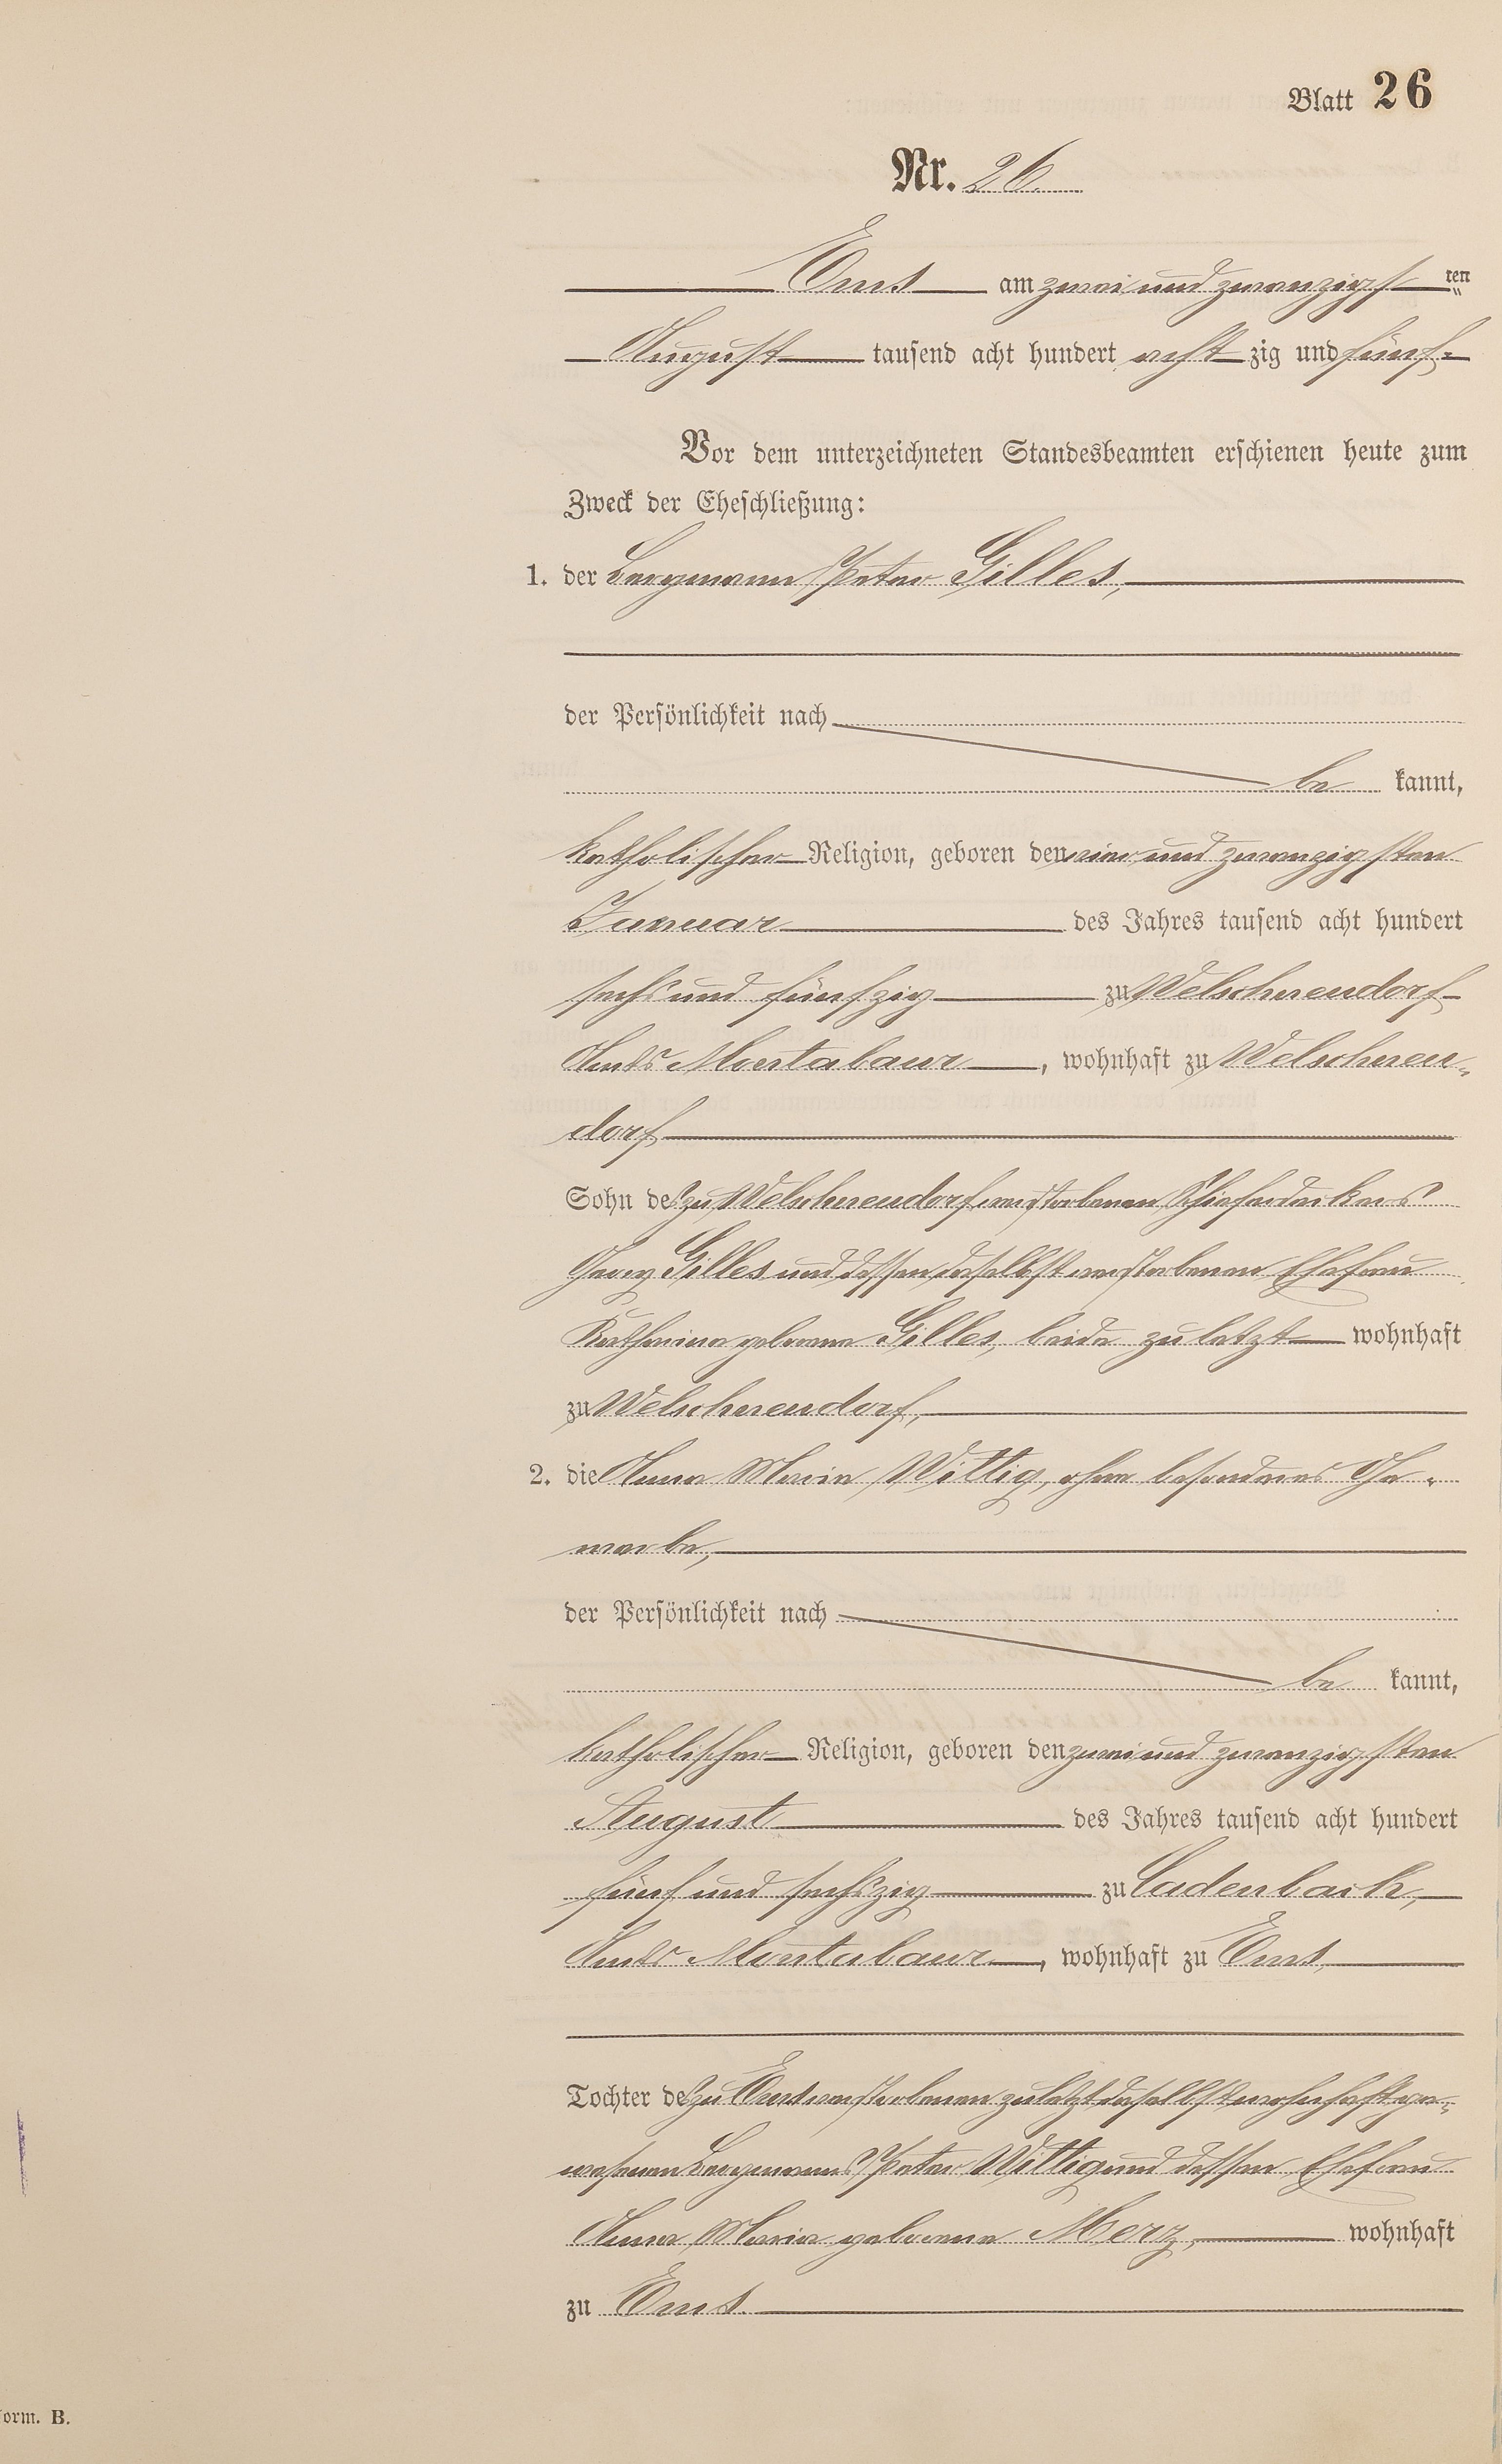 Blatt 26
Nr. 26.
Ems am zwei und zwanzigst ten
August tausend acht hundert acht zig und fünf.
Vor dem unterzeichneten Standesbeamten erschienen heute zum
Zweck der Eheschließung:
1. der Bergmann Peter Gilles,
der Persönlichkeit nach
be kannt,
katholischer Religion, geboren den vier und zwanzigsten
Januar des Jahres tausend acht hundert
sechs und fünfzig zu Welschneudorf
Amts Montabaur, wohnhaft zu Welschneu-
dorf
Sohn des zu Welschneudorf verstorbenen Schieferdeckers
Georg Gilles und dessen daselbst verstorbenen Ehefrau
Katharina geborene Gilles, beide zuletzt wohnhaft
zu Welschneudorf,
2. die Anna Maria Wittig, ohne besonderes Ge-
werbe,
der Persönlichkeit nach
be kannt,
katholischer Religion, geboren den zwei und zwanzigsten
August des Jahres tausend acht hundert
fünf und sechszig zu Cadenbach,
Amts Montabaur, wohnhaft zu Ems,
Tochter des zu Ems verstorbenen zuletzt daselbst wohnhaft ge-
wesenen Bergmanns Peter Wittig und dessen Ehefrau
Anna Maria geborene Merz, wohnhaft
zu Ems.
orm. B.